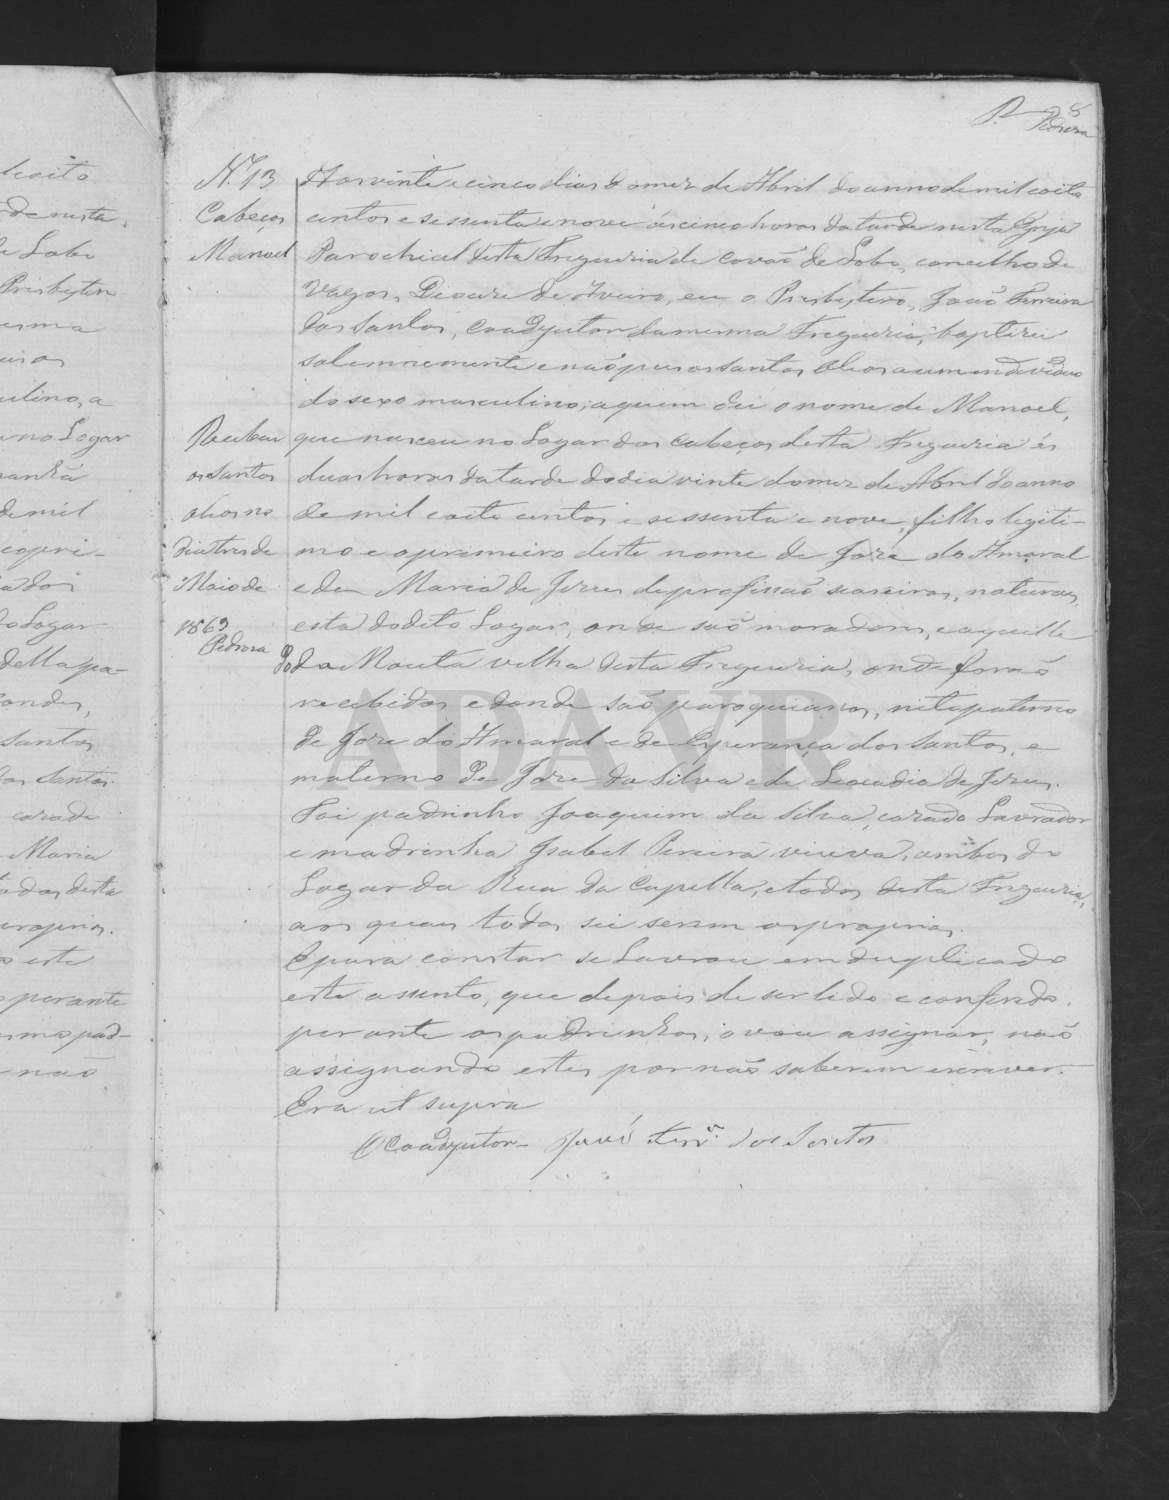 8
Pedrosa
N.º 13
Cabeços
Manoel
Recebeu
os Santos
oleos no
dia tres de
Maio de
1869
Pedrosa
Aos vinte e cinco dias do mez de Abril do anno de mil e oito
centos e sessenta e nove ás cinco horas da tarde nesta Igreja
Parochial desta Freguezia de Covaõ de Lobo, concelho de
Vagos, Diocese de Aveiro, eu o Presbytero, Joaõ Ferreira
dos Santos, Coadjutor da mesma Freguezia, baptizei
solemnemente e naõ puz os Santos Oleos a um individuo
do sexo masculino, a quem dei o nome de Manoel,
que nasceu no Logar dos Cabeços desta Freguezia ás
duas horas da tarde do dia vinte do mez de Abril do anno
de mil e oito centos e sessenta e nove, filho legiti-
mo e o primeiro deste nome de Joze do Amaral
e de Maria de Jezus de profissaõ seareiros, naturaes,
esta do dito Logar, onde saõ moradores, e aquelle
do da Mouta velha desta Freguezia, onde foraõ
recebidos e donde saõ paroquianos, neto paterno
de Joze do Amaral e de Esperança dos Santos, e
materno de Joze da Silva e de Leocadia de Jezus.
Foi padrinho Joaquim da Silva, cazado Lavrador
e madrinha Izabel Pereira viuva, ambos do
Logar da Rua da Capella, e todos desta Freguezia,
aos quaes todos sei serem os proprios.
E para constar se Lavrou em duplicado
este assento, que depois de ser lido e conferido
perante os padrinhos, o vou assignar, naõ
assignando estes por naõ saberem escrever.
Era ut supra
O Coadjutor Joaõ Ferrª dos Santos
ADAVR